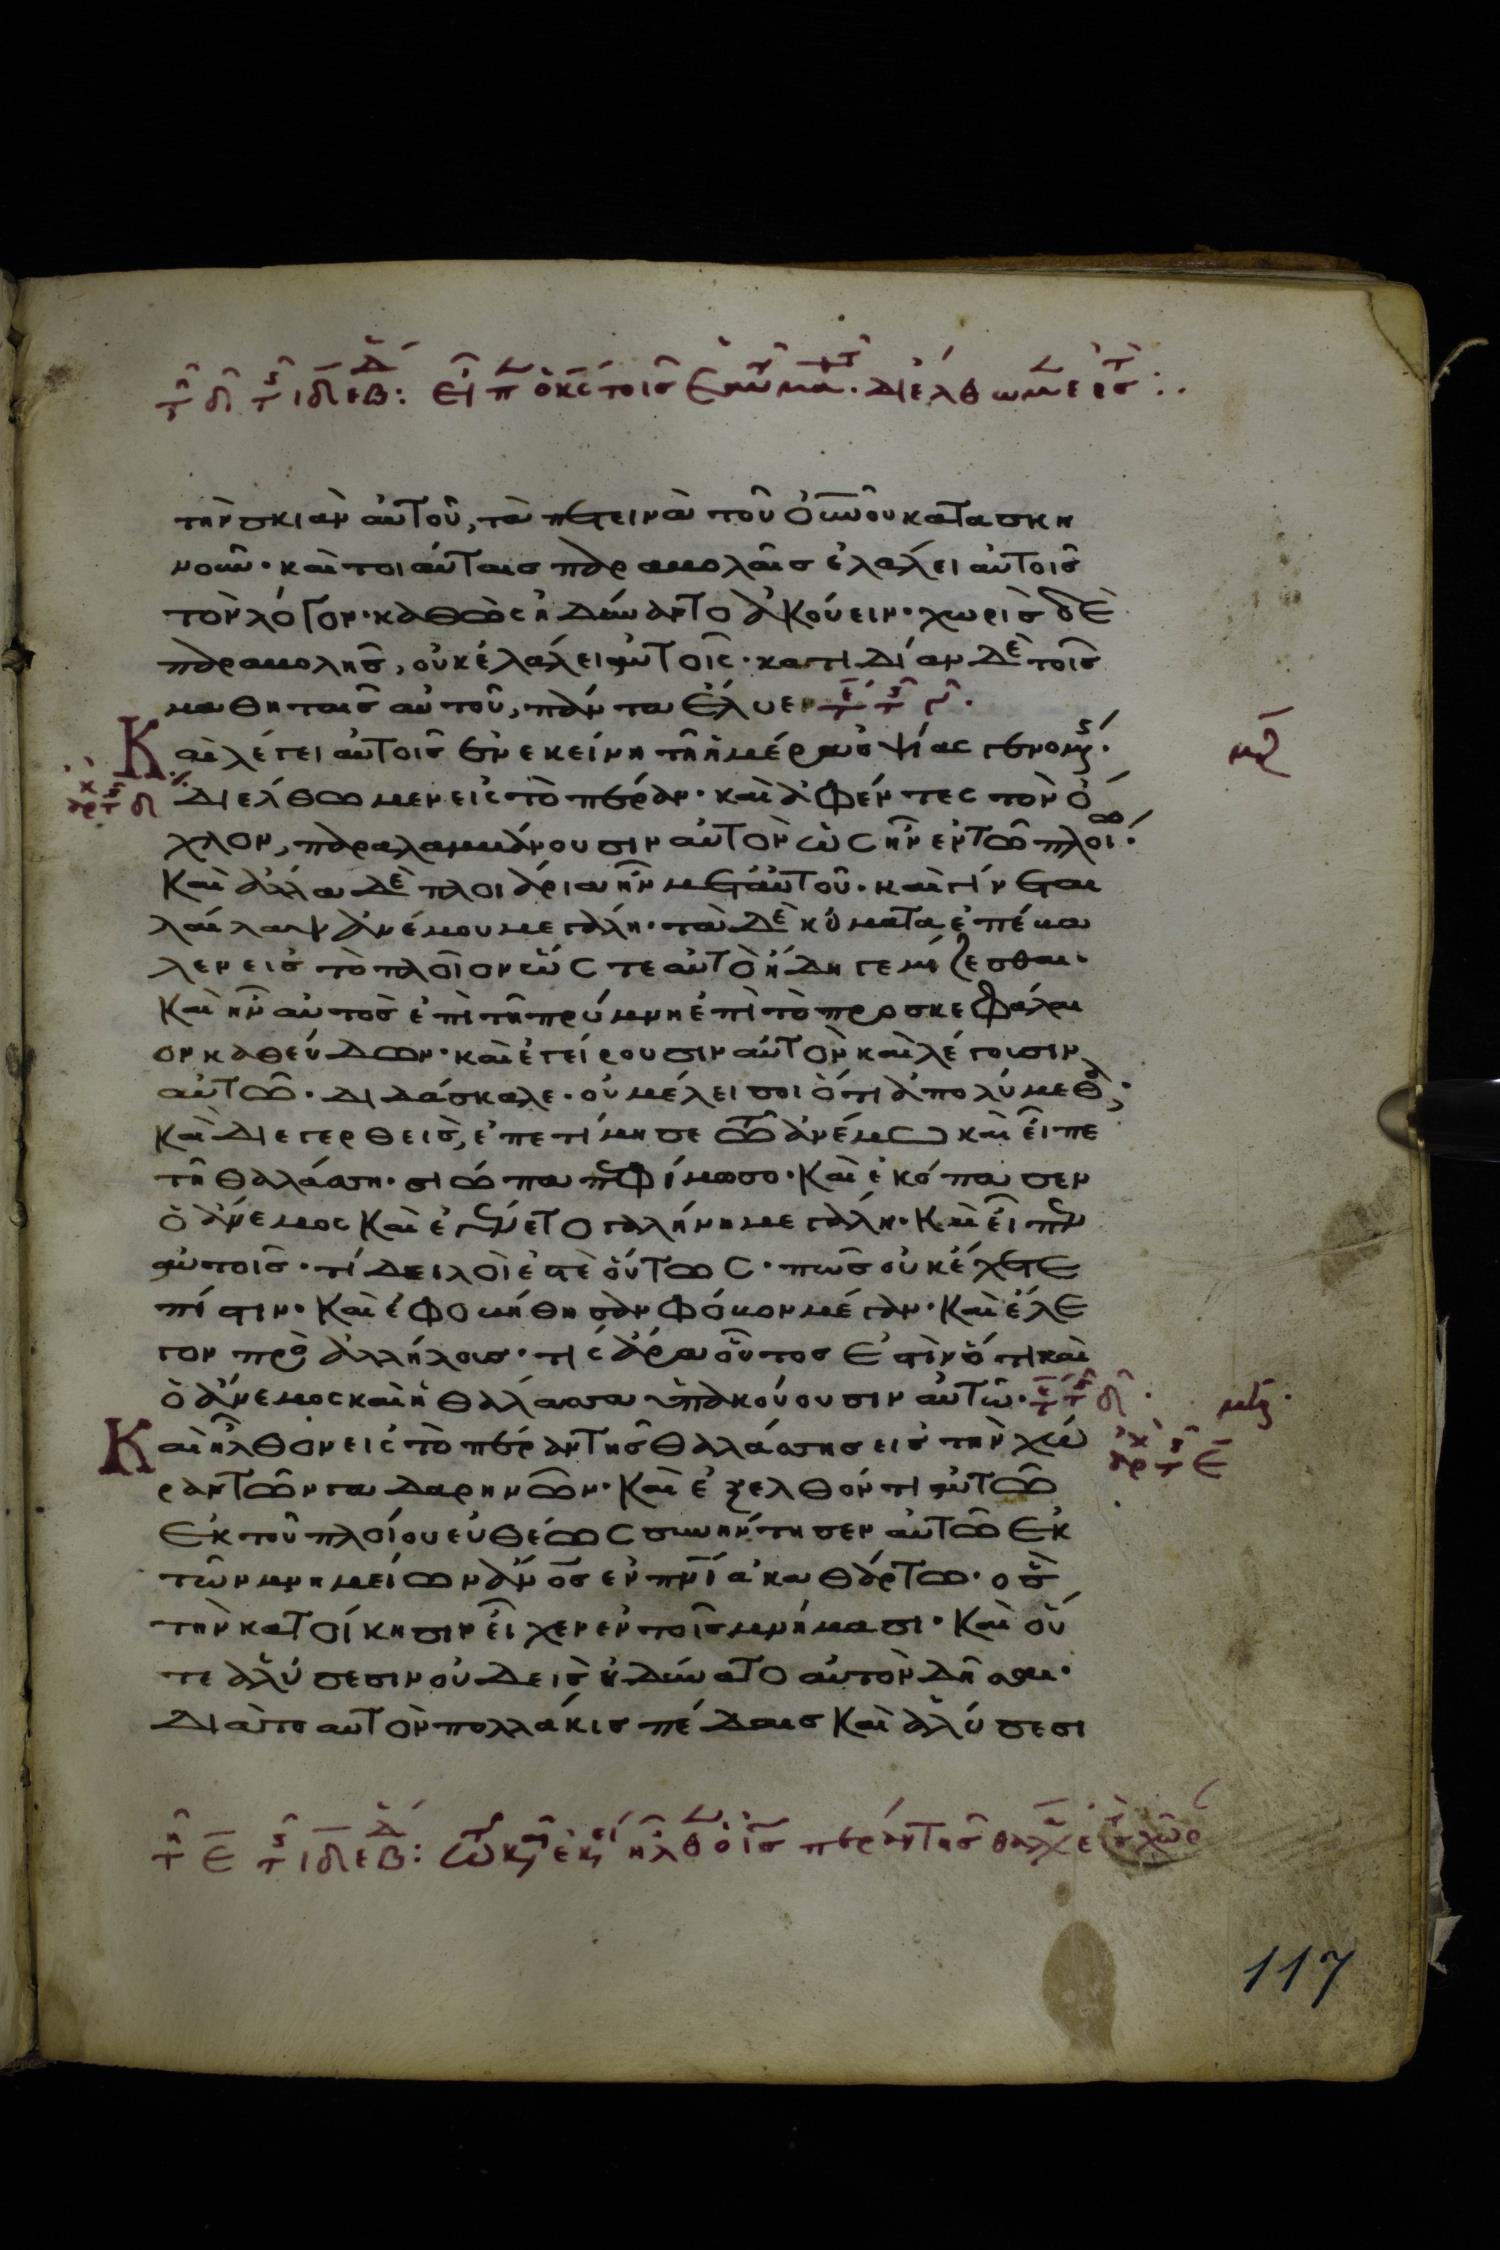 τῇ δ τῆς ιδ εβ: εἶπ ὁ κς τοῖς ἑαυ μα. διέλθωμεν εἰς τ:.
τὴν σκιὰν αὐτοῦ, τὰ πετεινὰ τοῦ οὐνοῦ κατασκη
νοῦν· καὶ τοιαύταις παραβολαῖς ἐλάλει αὐτοῖς
τὸν λόγον· καθὼς ἠδύναντο ἀκούειν· χωρὶς δὲ
παραβολῆς, οὐκ ἐλάλει αὐτοῖς· κατιδίαν δὲ τοῖς
μαθηταῖς αὐτοῦ, πάντα ἔλυεν
Καὶ λέγει αὐτοῖς ἐν ἐκείνῃ τῇ ἡμέρα ὀψίας γενομ·
μς
ἀρχ τῆς δ
διέλθωμεν εἰς τὸ πέραν· καὶ ἀφέντες τὸν ὄ
χλον, παραλαμβάνουσιν αὐτὸν ὡς ἦν ἐν τῶ πλοίω·
καὶ ἄλλα δὲ πλοιάρια ἦν μετ' αὐτοῦ· καὶ γίνεται
λαίλαψ ἀνέμου μεγάλη· τὰ δὲ κύματα ἐπέβα
λεν εἰς τὸ πλοῖον ὥστε αὐτὸ ἤδη γεμίζεσθαι·
καὶ ἦν αὐτὸς ἐπὶ τῇ πρύμνη ἐπὶ τὸ προσκεφάλαι
ον καθεύδων· καὶ ἐγείρουσιν αὐτὸν καὶ λέγουσιν
αὐτῶ· διδάσκαλε· οὐ μέλει σοι ὅτι ἀπολύμεθα;
καὶ διεγερθεὶς, ἐπετίμησε τῶ ἀνέμω καὶ εἶπε
τῇ θαλάσση· σιώπα πεφίμωσο· καὶ ἐκόπασεν
ὁ ἄνεμος καὶ ἐγένετο γαλήνη μεγάλη· καὶ εἶπεν
αὐτοῖς· τί δειλοί ἐστὲ οὕτως· πῶς οὐκ ἔχετε
πίστιν· καὶ ἐφοβήθησαν φόβον μέγαν· καὶ ἔλε
γον πρὸς ἀλλήλους· τίς ἄρα οὗτος ἐστὶν ὅτι καὶ
ὁ ἄνεμος καὶ ἡ θάλασσα ὑπακούουσιν αὐτῶ· τε τῆς δ·
μζ·
Καὶ ἦλθον εἰς τὸ πέραν τῆς θαλάσσης εἰς τὴν χώ
ἀρχ τῆς ε
ραν τῶν γαδαρηνῶν· καὶ ἐξελθόντι αὐτῶ
ἐκ τοῦ πλοίου εὐθέως συνήντησεν αὐτῶ ἐκ
τῶν μνημείων ἄνος ἐν πνι ἀκαθάρτω· ὃς
τὴν κατοίκησιν εἶχεν ἐν τοῖς μνήμασι· καὶ οὔ
τε ἁλύσεσιν οὐδεὶς ἠδύνατο αὐτὸν δῆσαι·
διὰ τὸ αὐτὸν πολλάκις πέδαις καὶ ἁλύσεσι
τῇ ε τῆς ιδ εβ: τῶ κ ἐκ ἦλθ ὁ ις πέραν τῆς θαλ εἰς τ χώρ
117